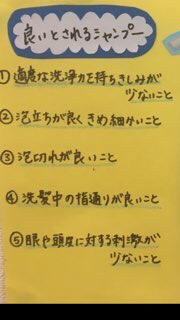 良いとされるシャンプー
①適度な洗浄力を持ちきしみが
少ないこと
②泡立ちが良くきめ細かいこと
③泡切れが良いこと
④洗髪中の指通りが良いこと
⑤眼や頭皮に対する刺激が
少ないこと